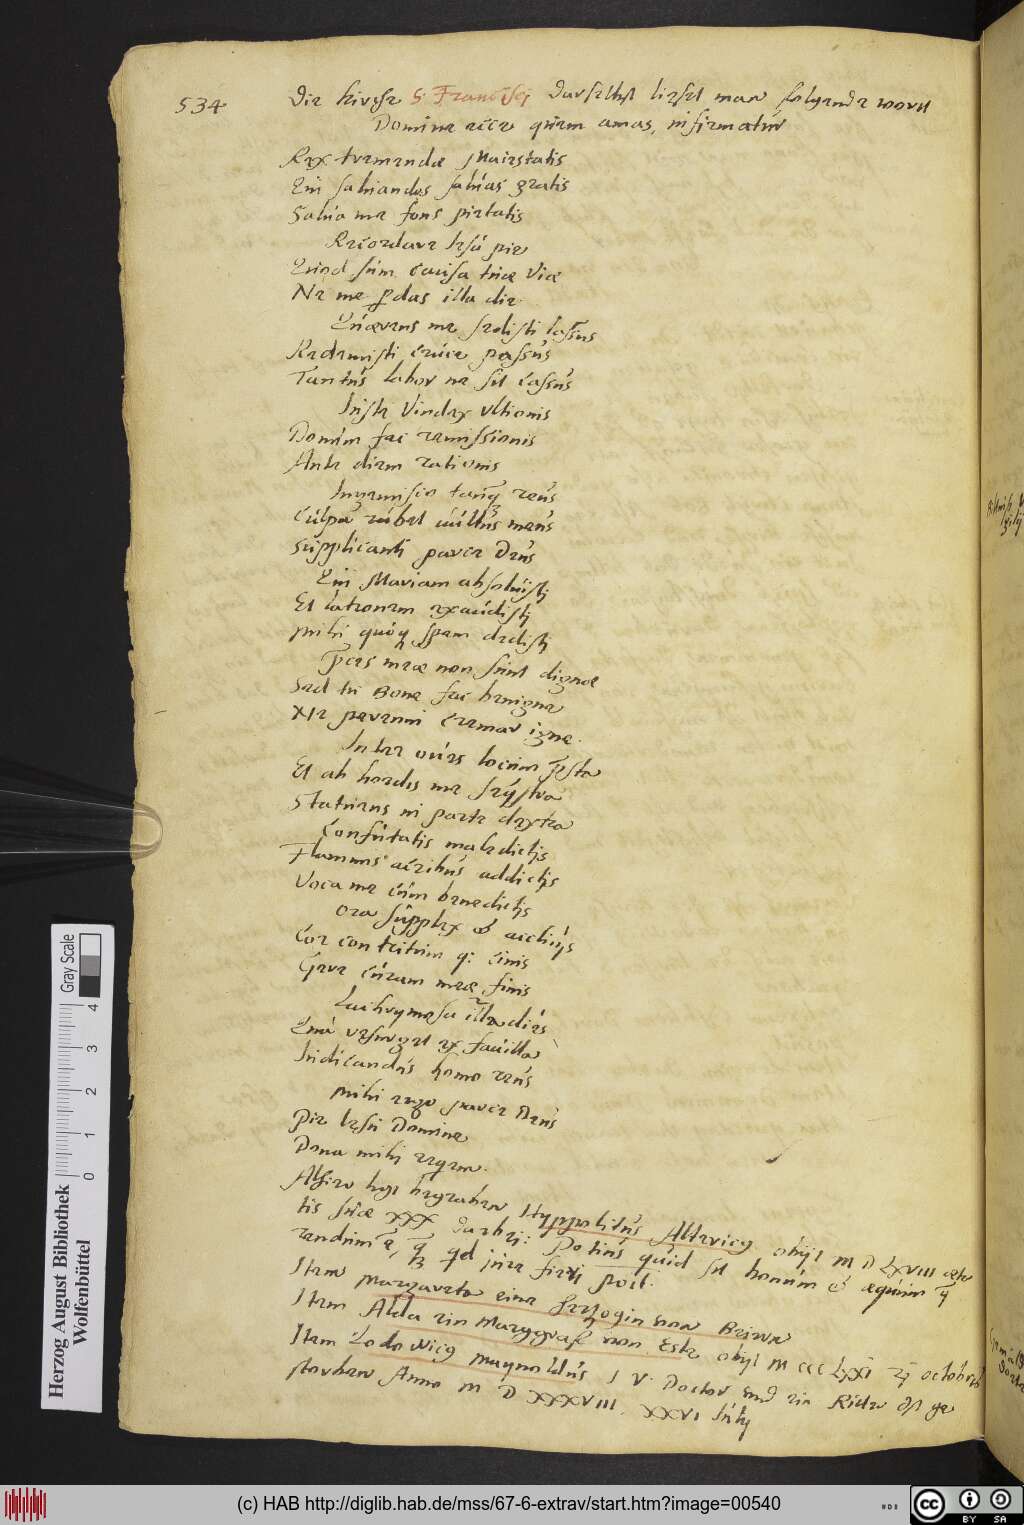 534
Die kirche S. Francisci daselbst lieset man folgende wort
Domine ecce quem amas, infirmatur
Rex tremendae Maiestatis
Qui saluandos saluas gratis
Salua me fons pietatis
Recordare Iesu pie
Quod sum causa tuae viae
Ne me pdas illa die
Quaerens me sedisti lassus
Redemisti cruce passus
Tantus labor ne sit cassus
Iuste Vindex vltionis
Donum fac remissionis
Ante diem rationis
Ingemisco tanq reus
Culpa rubet uultus meus
Supplicanti parce Deus
Qui Mariam absoluisti
Et latronem exaudisti
Mihi quoq spem dedisti
Pces meae non sunt dignae
Sed tu Bone fac benigne
Ne perenni cremar igne.
Inter oues locum psta
Et ab hoedis me seqstra
Statuens in parte dextra
Confutatis maledictis
Flammis acribus addictis
Voca me cum benedictis
Ora supplex & acclinis
Cor contritum q: cinis
Gere curam meae finis
Lachrymosa illa dies
Qua resurget ex fauilla
Iudicandus homo reus
Mihi ergo parce Deus
Pie Iesu Domine
Dona mihi requiem.
Alhier ligt begraben Hyppolitus Altericg obijt M D LXVIII aeta
tis suae XXX darbej: Potius quid sit bonum & aequum q
rendum e, q qd jure fieri poss.
Item Margareta eine Hertzogin von
Item Alda ein Marggraf von Este obijt M CCC LXXI octobris
Item Lodovicg Magnoldus I V. Doctor und ein Ritter ist ge
storben Anno M D XXXVIII. XXVI Iulij
Herzog August Bibliothek
Wolfenbüttel
Gray Scale
0 1 2 3 4
(c) HAB http://diglib.hab.de/mss/67-6-extrav/start.htm?image=00540
cc BY SA